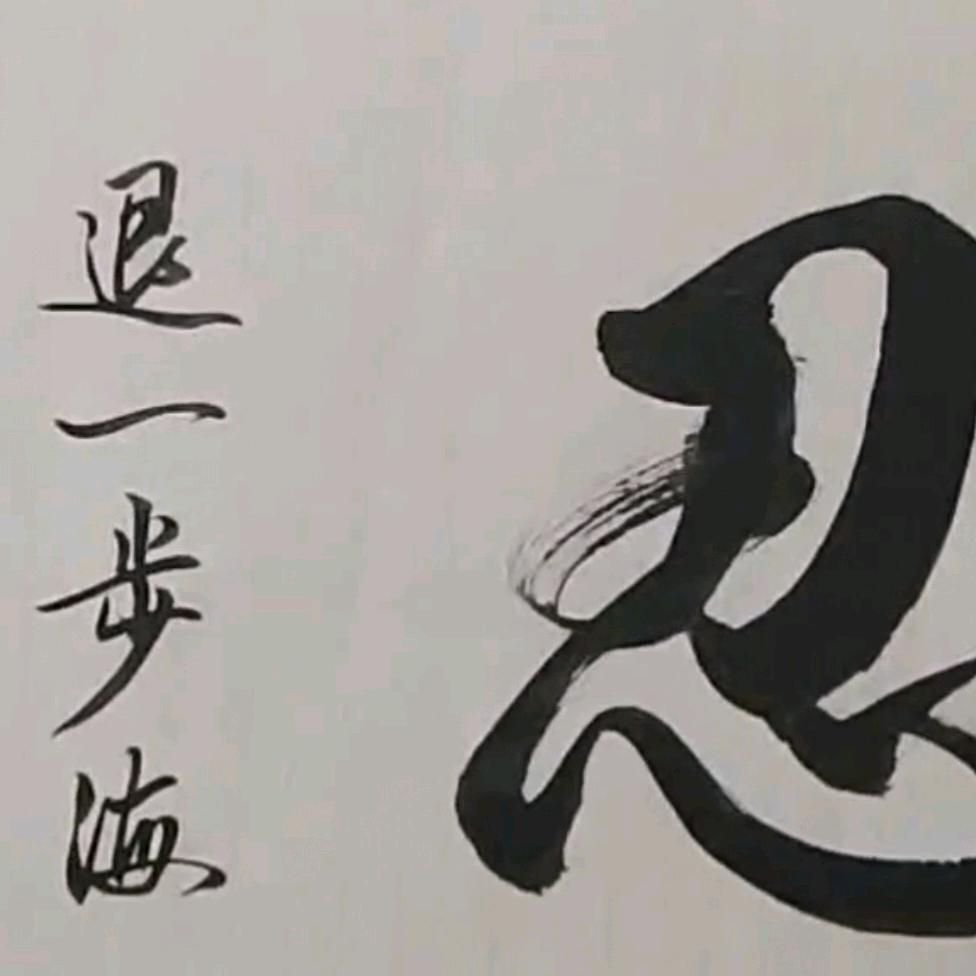 忍
退一步海